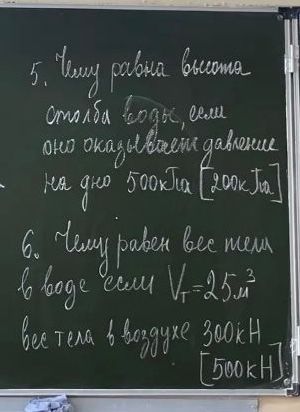 5. Чему равна высота
столба воды, если
оно оказывает давление
на дно 500кПа [200кПа]
6. Чему равен вес тела
в воде если Vт=25м³
вес тела в воздухе 300кН
[500кН]